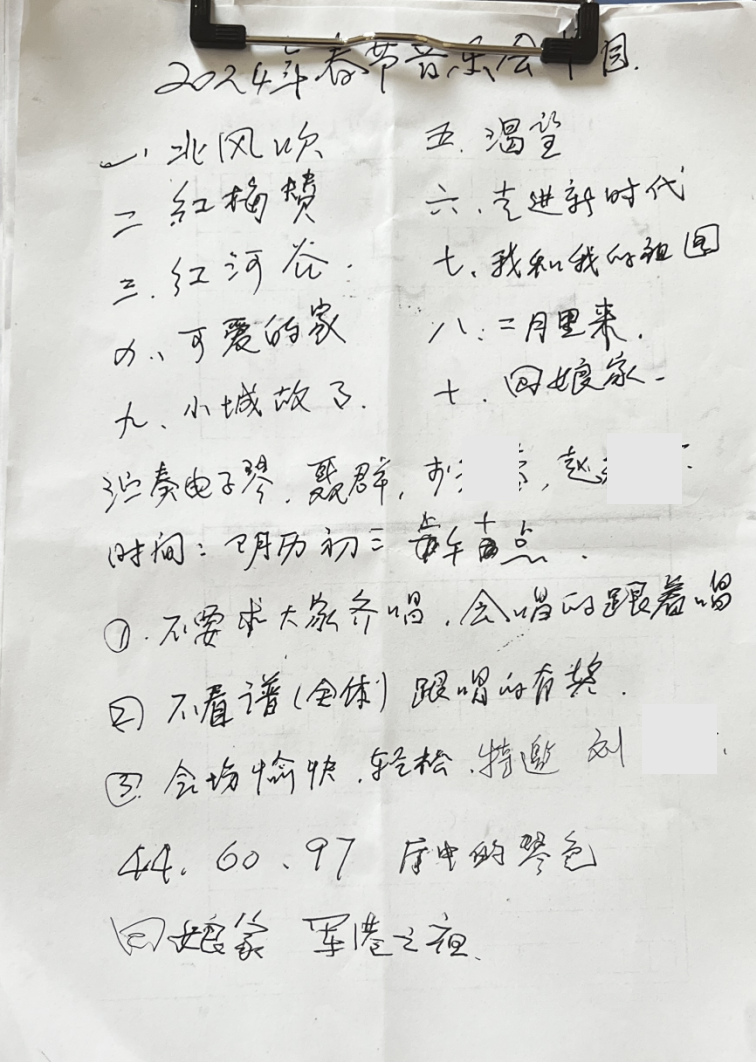 2024年春节音乐会节目.
一、北风吹 五.渴望
二 红梅赞 六.走进新时代
三.红河谷. 七、我和我的祖国
四、可爱的家 八:二月里来.
九、小城故了. 十.回娘家-
演奏电子琴,聚群, 赵
时间:阴历初二 点.
①.不要求大家齐唱,会唱的跟着唱
② 不看谱(全体)跟唱的有奖.
③.会场愉快.轻松、特邀 刘
44. 60. 97 库中的琴色
回娘家 军港之夜.